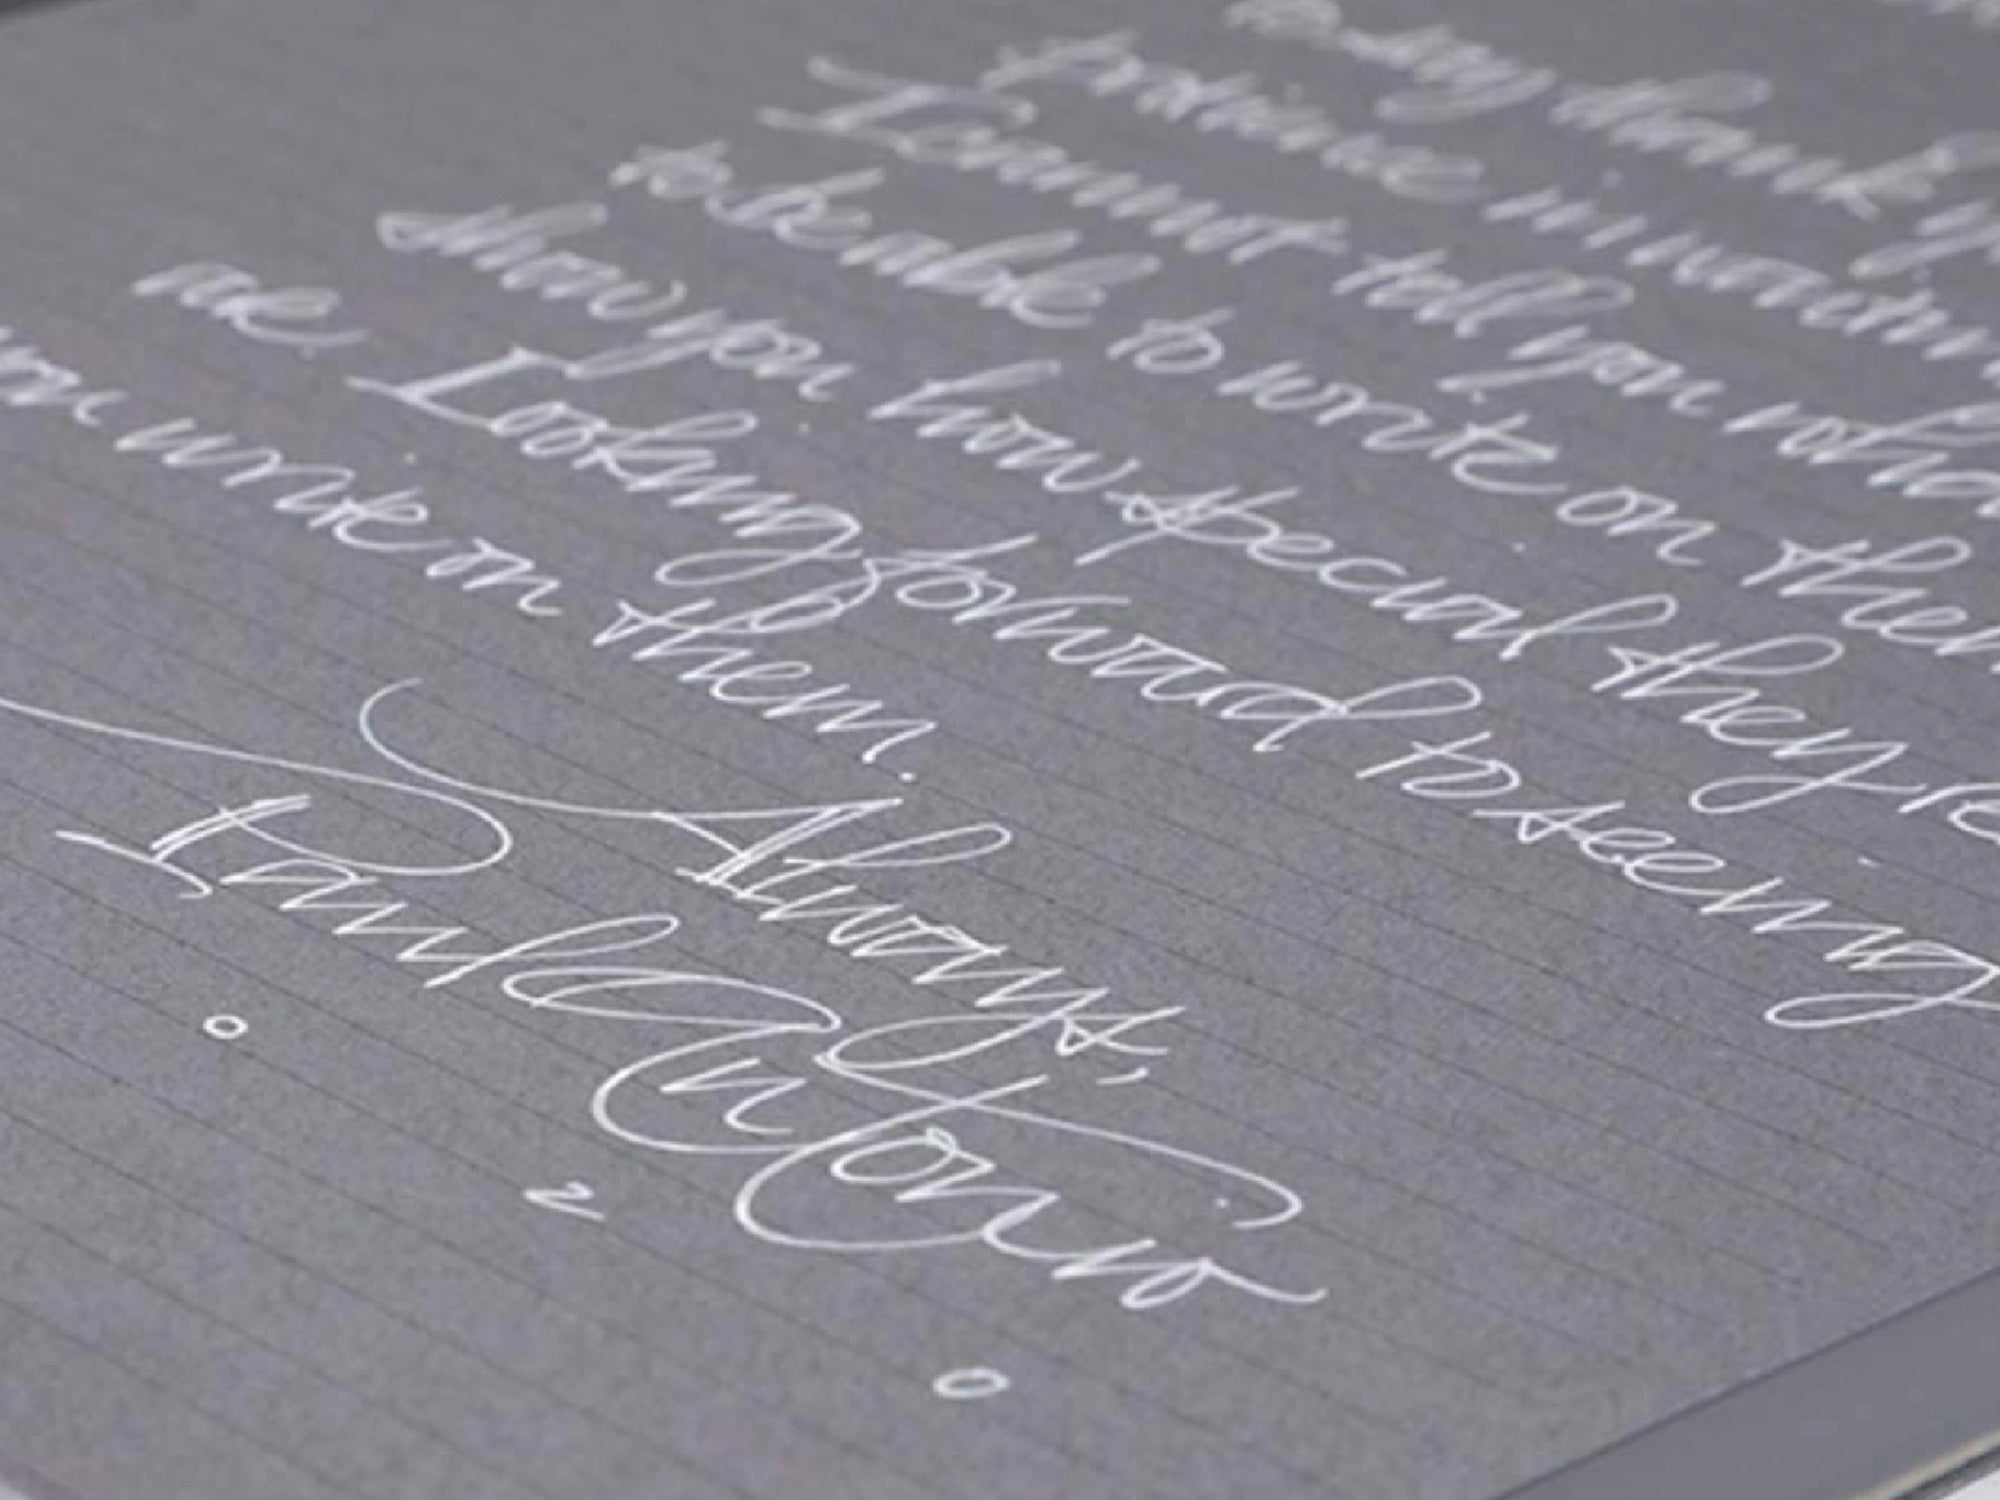 thank
patience in
I cannot tell you
to be able to write on them
show you how special they
are Looking forward to seeing
you write on them.
Always,
Paul Antonio